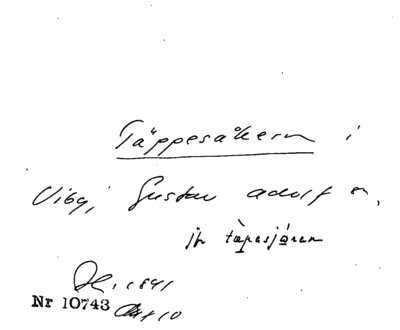 Täppesåkern i
Viby, Gustav Adolf
jh täpesjåren
1841
Nr 10743